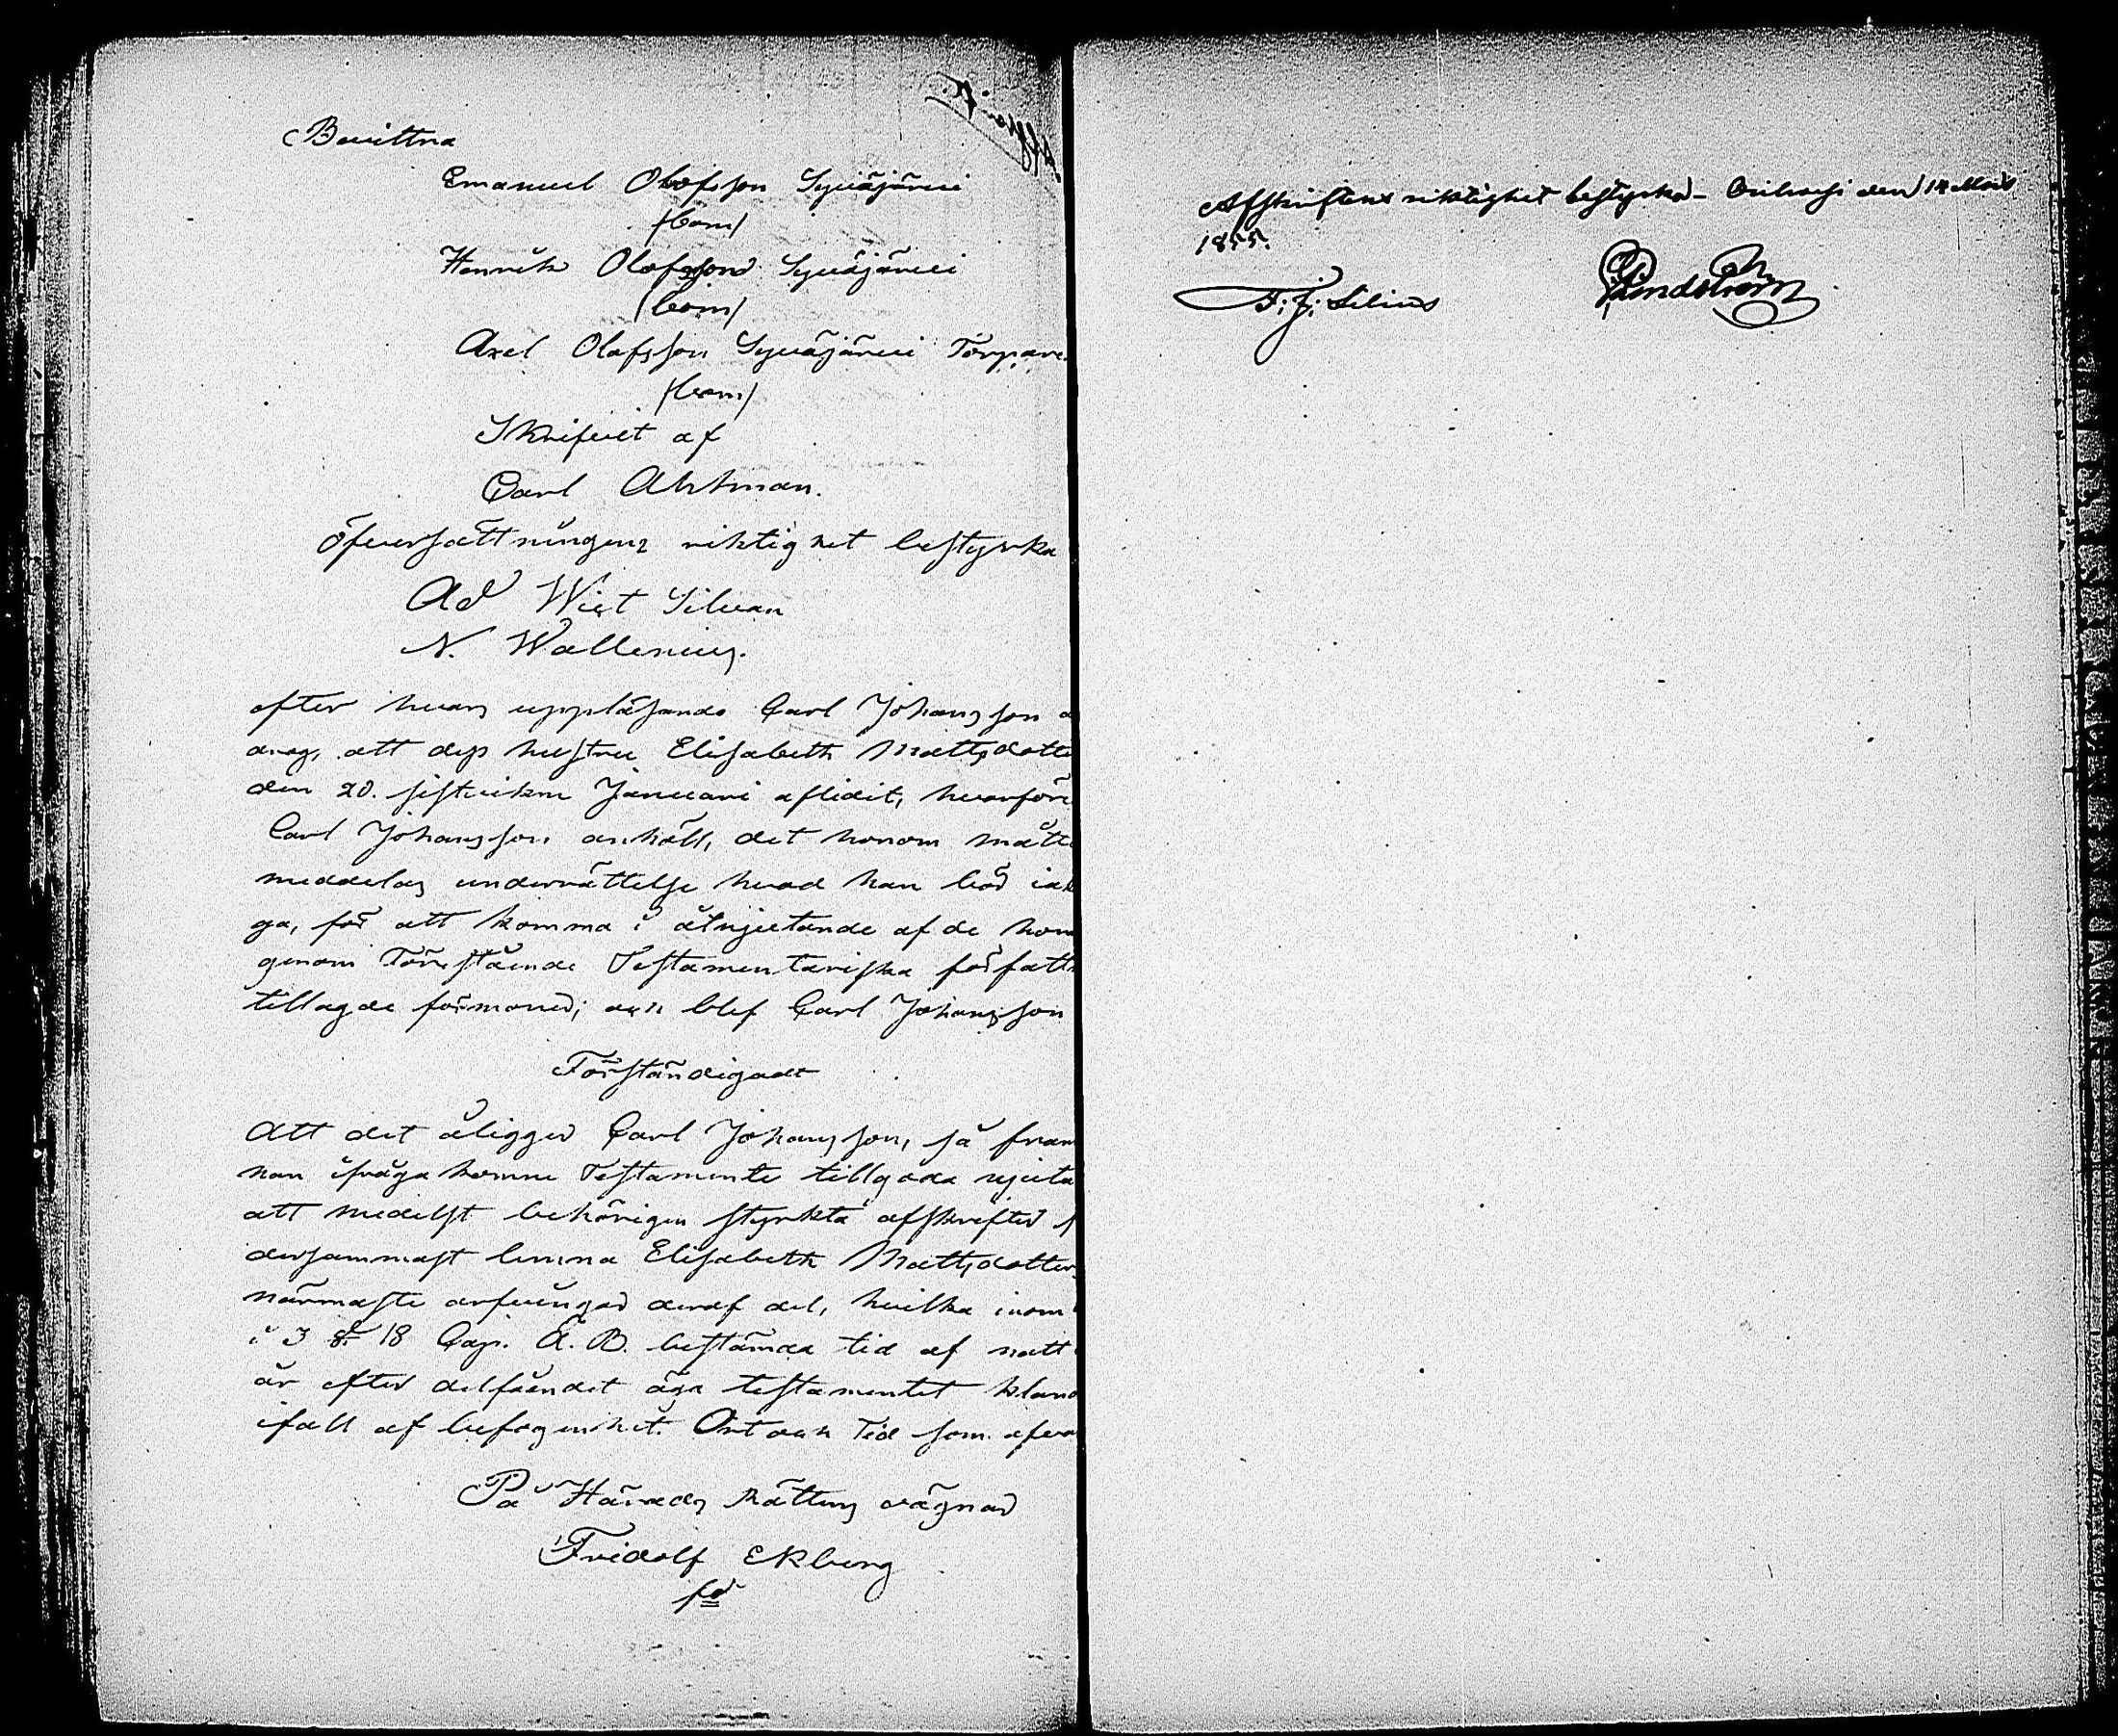 Bevittna
Emanuel Olofsson Syväjärvi
/bom/
Henrik Olofsson Syväjärvi
/bom/
Axel Olofsson Syväjärvi Torpare
/bom/
Skrifvit af
Carl Ahtman.
öfversättningens riktighet bestyrka
Ad Wist Silvan
N. Wallenius.
efter hvars uppläsande Carl Johansson
drog, att dess hustru Elisabeth Mattsdotte
den 20. sistvikne Januari aflidit, hvarföre
Carl Johansson anhöll, det honom måtte
meddelas underrättelse hvad han bör iak
ga, för att komma i åtnjutande af de hon
genom Förestående Testamentariska författ
tillagde förmoner; och blef Carl Johansson
Förständigadt
Att det åligger Carl Johansson, så fram
han ifråga komne Testamente tillgoda njuta
att medelst behörigen styrkta afskrifter
dersammast lemna Elisabeth Mattsdotters
närmaste arfvingar deraf del, hvilka inom
i 3 § 18 Cap. Ä. B. bestämda tid af natt
år efter delfåendet äga testamentet kland
ifall af befogenhet. Ort och Tid som ofva
På Härads Rättens vägnar
Fridolf Ekberg
Afskriftens riktighet bestyrka - den 14 Mars
1855.
F. J. Silius
Lindström